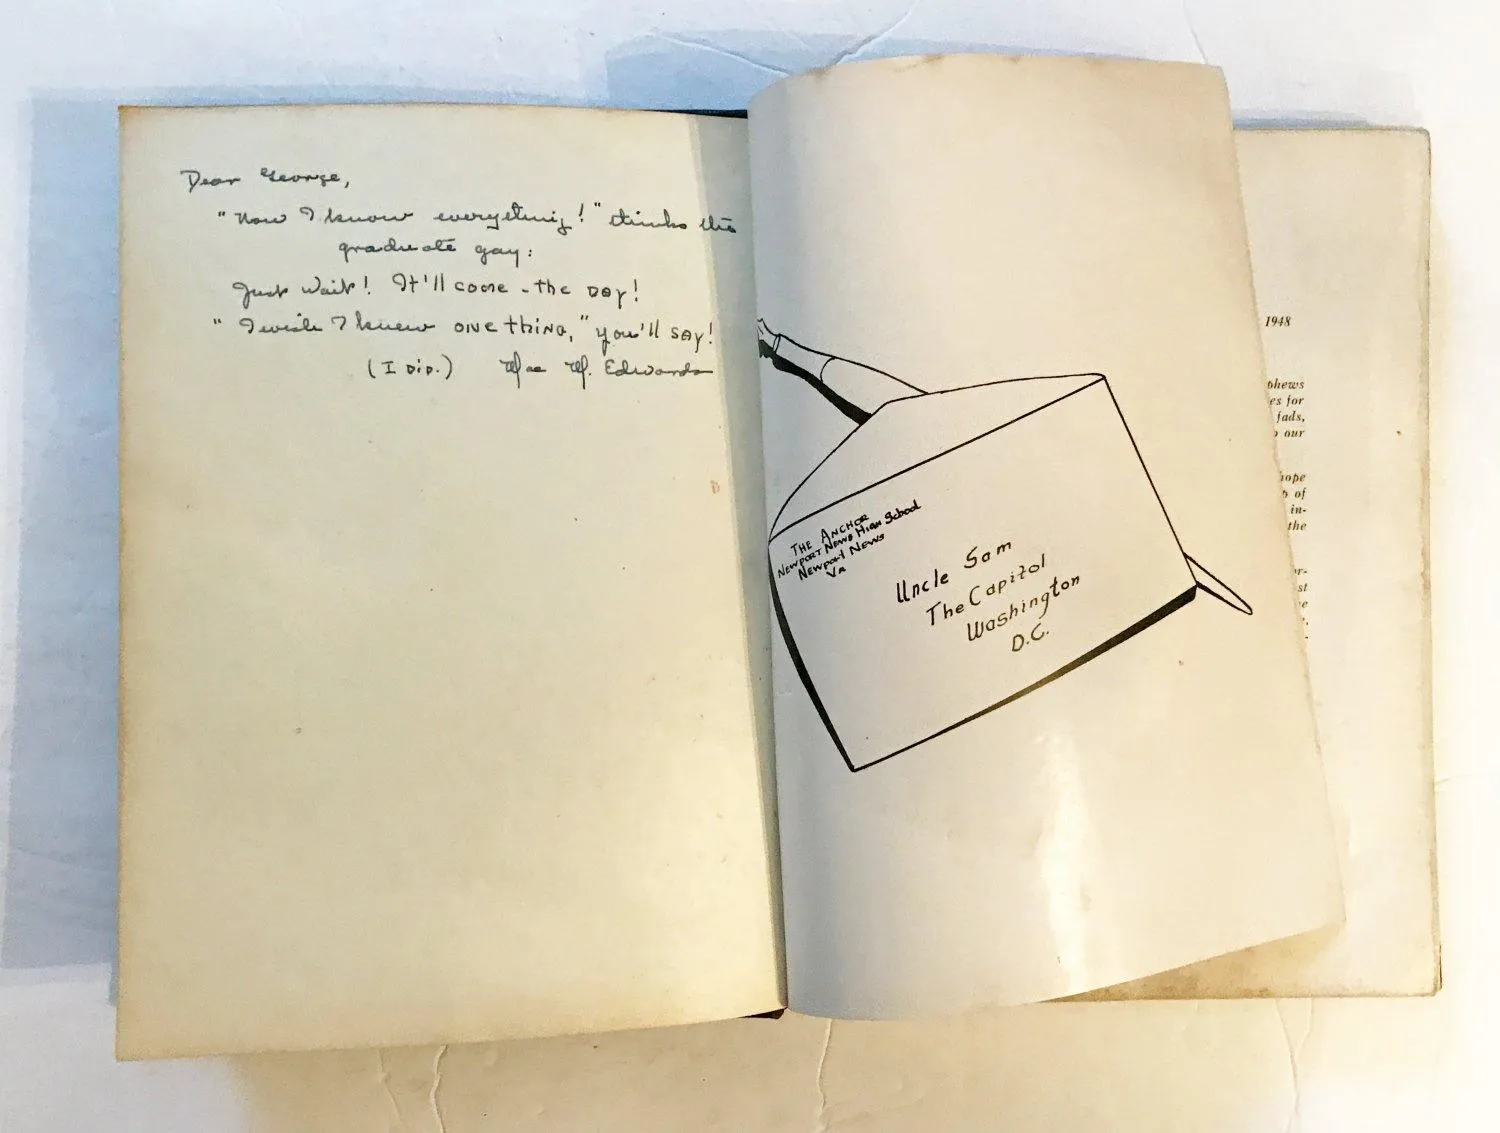 Dear George,
"Now I know everything!" thinks the
graduate gay:
Just wait! It'll come - the DAY!
"I wish I knew ONE thing," you'll SAY!
(I DID.) Mae M. Edwards
THE ANCHOR
NEWPORT NEWS HIGH School
NEWPORT NEWS
VA
Uncle Sam
The Capitol
Washington
D.C.
1948
phews
es for
fads,
o our
hope
p of
in-
the
or-
st